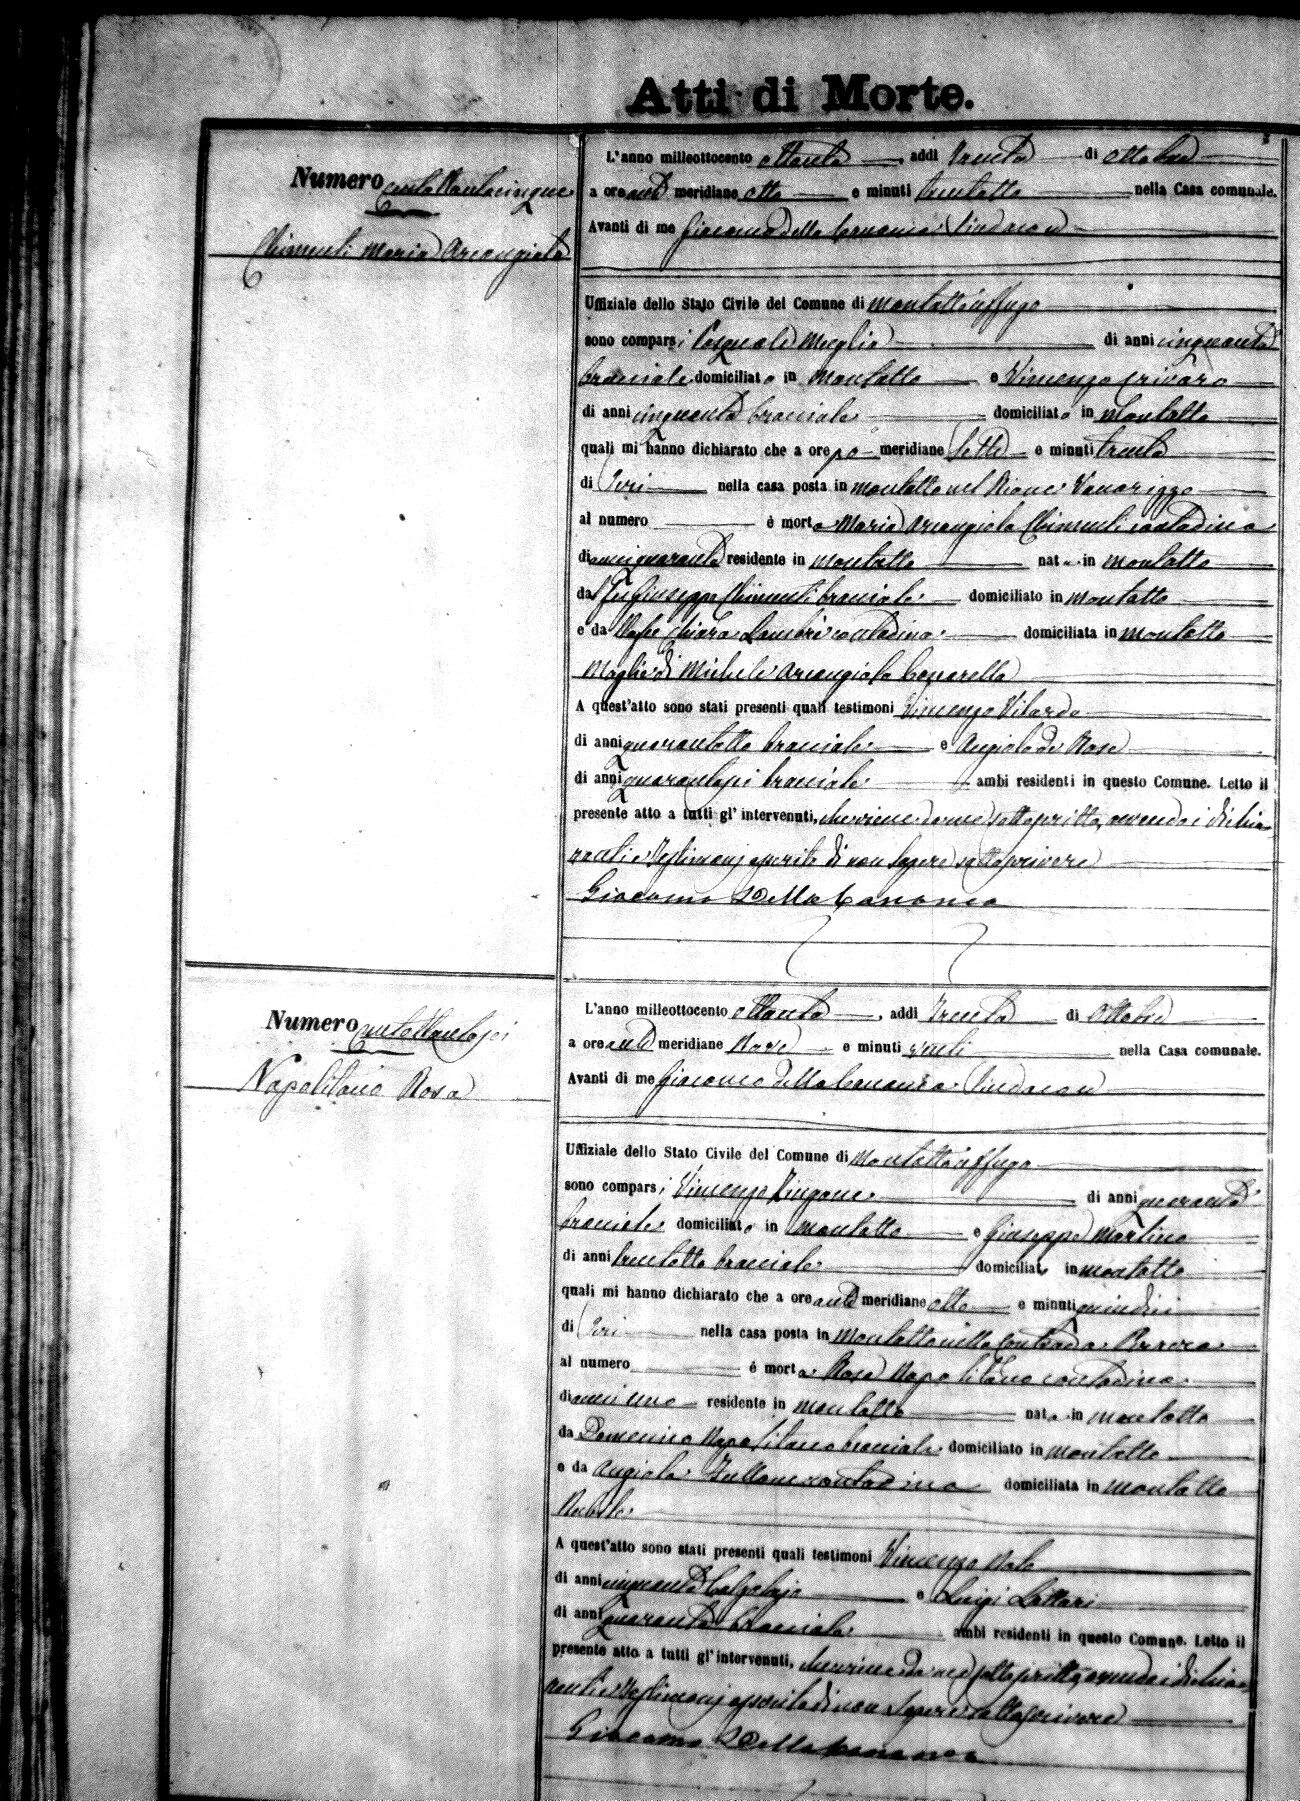 Atti di Morte.
Numero centottantacinque
Chimenti Maria Arcangiola
L'anno milleottocento ottanta, addi trenta di Ottobre
a ore anti meridiane otto e minuti trentotto nella Casa comunale.
Avanti di me Giacomo della Cananea Sindaco
Uffiziale dello Stato Civile del Comune di Montalto Uffugo
sono comparsi Pasquale Meglio di anni cinquanta
bracciale domiciliato in Montalto e Vincenzo Crivaro
di anni cinquanta bracciale domiciliato in Montalto
quali mi hanno dichiarato che a ore po meridiane sette e minuti trenta
di Ieri nella casa posta in Montalto nel Rione
al numero é morta Maria Arcangiola Chimenti contadina
di anni quaranta residente in Montalto nata in Montalto
da fu Giuseppe Chimenti bracciale domiciliato in Montalto
e da Chiara contadina domiciliata in Montalto
Moglie di Michele Arcangiolo Canarella
A quest'atto sono stati presenti quali testimoni Vincenzo Vilardo
di anni quarantotto bracciale e Angiolo de Rose
di anni quarantasei bracciale ambi residenti in questo Comune. Letto il
presente atto a tutti gl' intervenuti, che viene da me sottoscritto, avendo i dichia-
ranti e testimonj asserito di non sapere sottoscrivere
Giacomo Della Cananea
Numero centottantasei
Napolitano Rosa
L'anno milleottocento ottanta, addi trenta di Ottobre
a ore anti meridiane nove e minuti venti nella Casa comunale.
Avanti di me Giacomo della Cananea Sindaco
Uffiziale dello Stato Civile del Comune di Montalto Uffugo
sono comparsi Vincenzo Zingone di anni quaranta
bracciale domiciliato in Montalto e Giuseppe Martino
di anni trentotto bracciale domiciliato in Montalto
quali mi hanno dichiarato che a ore anti meridiane otto e minuti quindici
di Ieri nella casa posta in Montalto nella Contrada
al numero é morta Rosa Napolitano contadina
di anni uno residente in Montalto nata in Montalto
da Domenico Napolitano bracciale domiciliato in Montalto
e da Angiola contadina domiciliata in Montalto
Nubile
A quest'atto sono stati presenti quali testimoni Vincenzo
di anni cinquanta Calzolajo e Luigi Lattari
di anni quaranta bracciale ambi residenti in questo Comune. Letto il
presente atto a tutti gl' intervenuti, che viene da me sottoscritto, avendo i dichia-
ranti e testimonj asserito di non sapere sottoscrivere
Giacomo Della Cananea